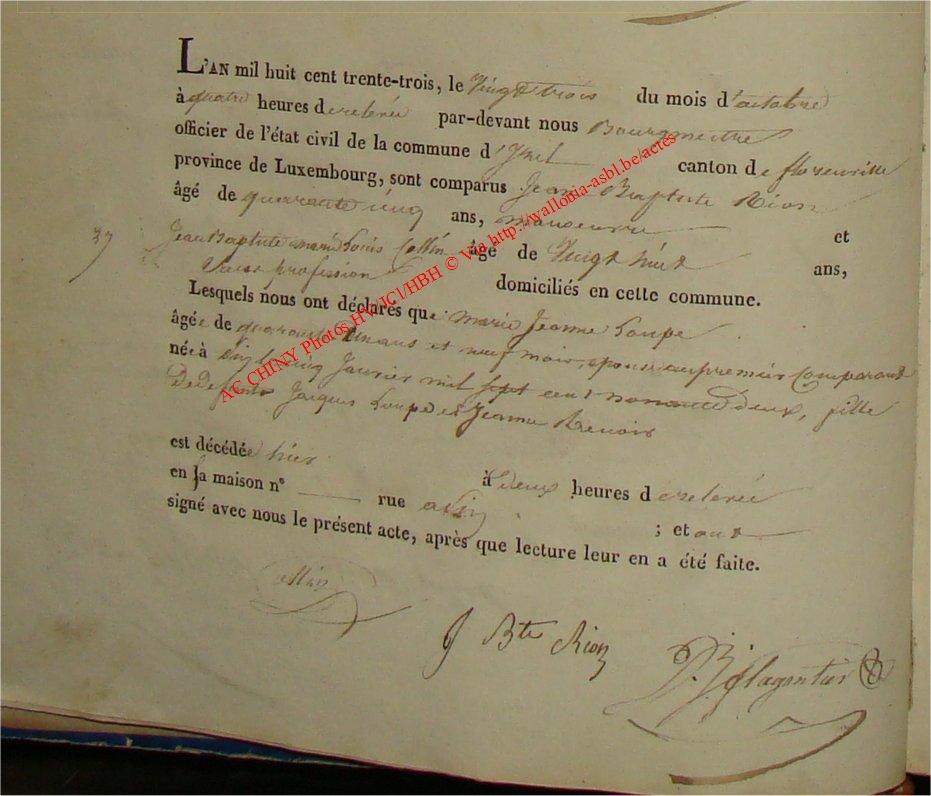 L'AN mil huit cent trente-trois, le Vingt trois du mois d'octobre
à quatre heures de relevée par-devant nous Bourgmestre
officier de l'état civil de la commune d'Izel canton de florenville
province de Luxembourg, sont comparus Jean Baptiste Rion
âgé de quarante cinq ans, manoeuvre et
37 Jean Baptiste marie Louis Collin âgé de Vingt huit ans,
Sans profession domiciliés en cette commune.
Lesquels nous ont déclarés que marie Jeanne Loupe
âgée de quarante un ans et neuf mois, épouse au premier Comparant
née à Izel le cinq Janvier mil sept cent nonante deux, fille
De defunts Jacques Loupe et Jeanne Renoir
est décédée hier à deux heures de relevée
en sa maison n° rue à Izel ; et ont
signé avec nous le présent acte, après que lecture leur en a été faite.
Collin
J Bte Rion
AC CHINY Photos HW/JCl/HBH © Via http://wallonia-asbl.be/actes